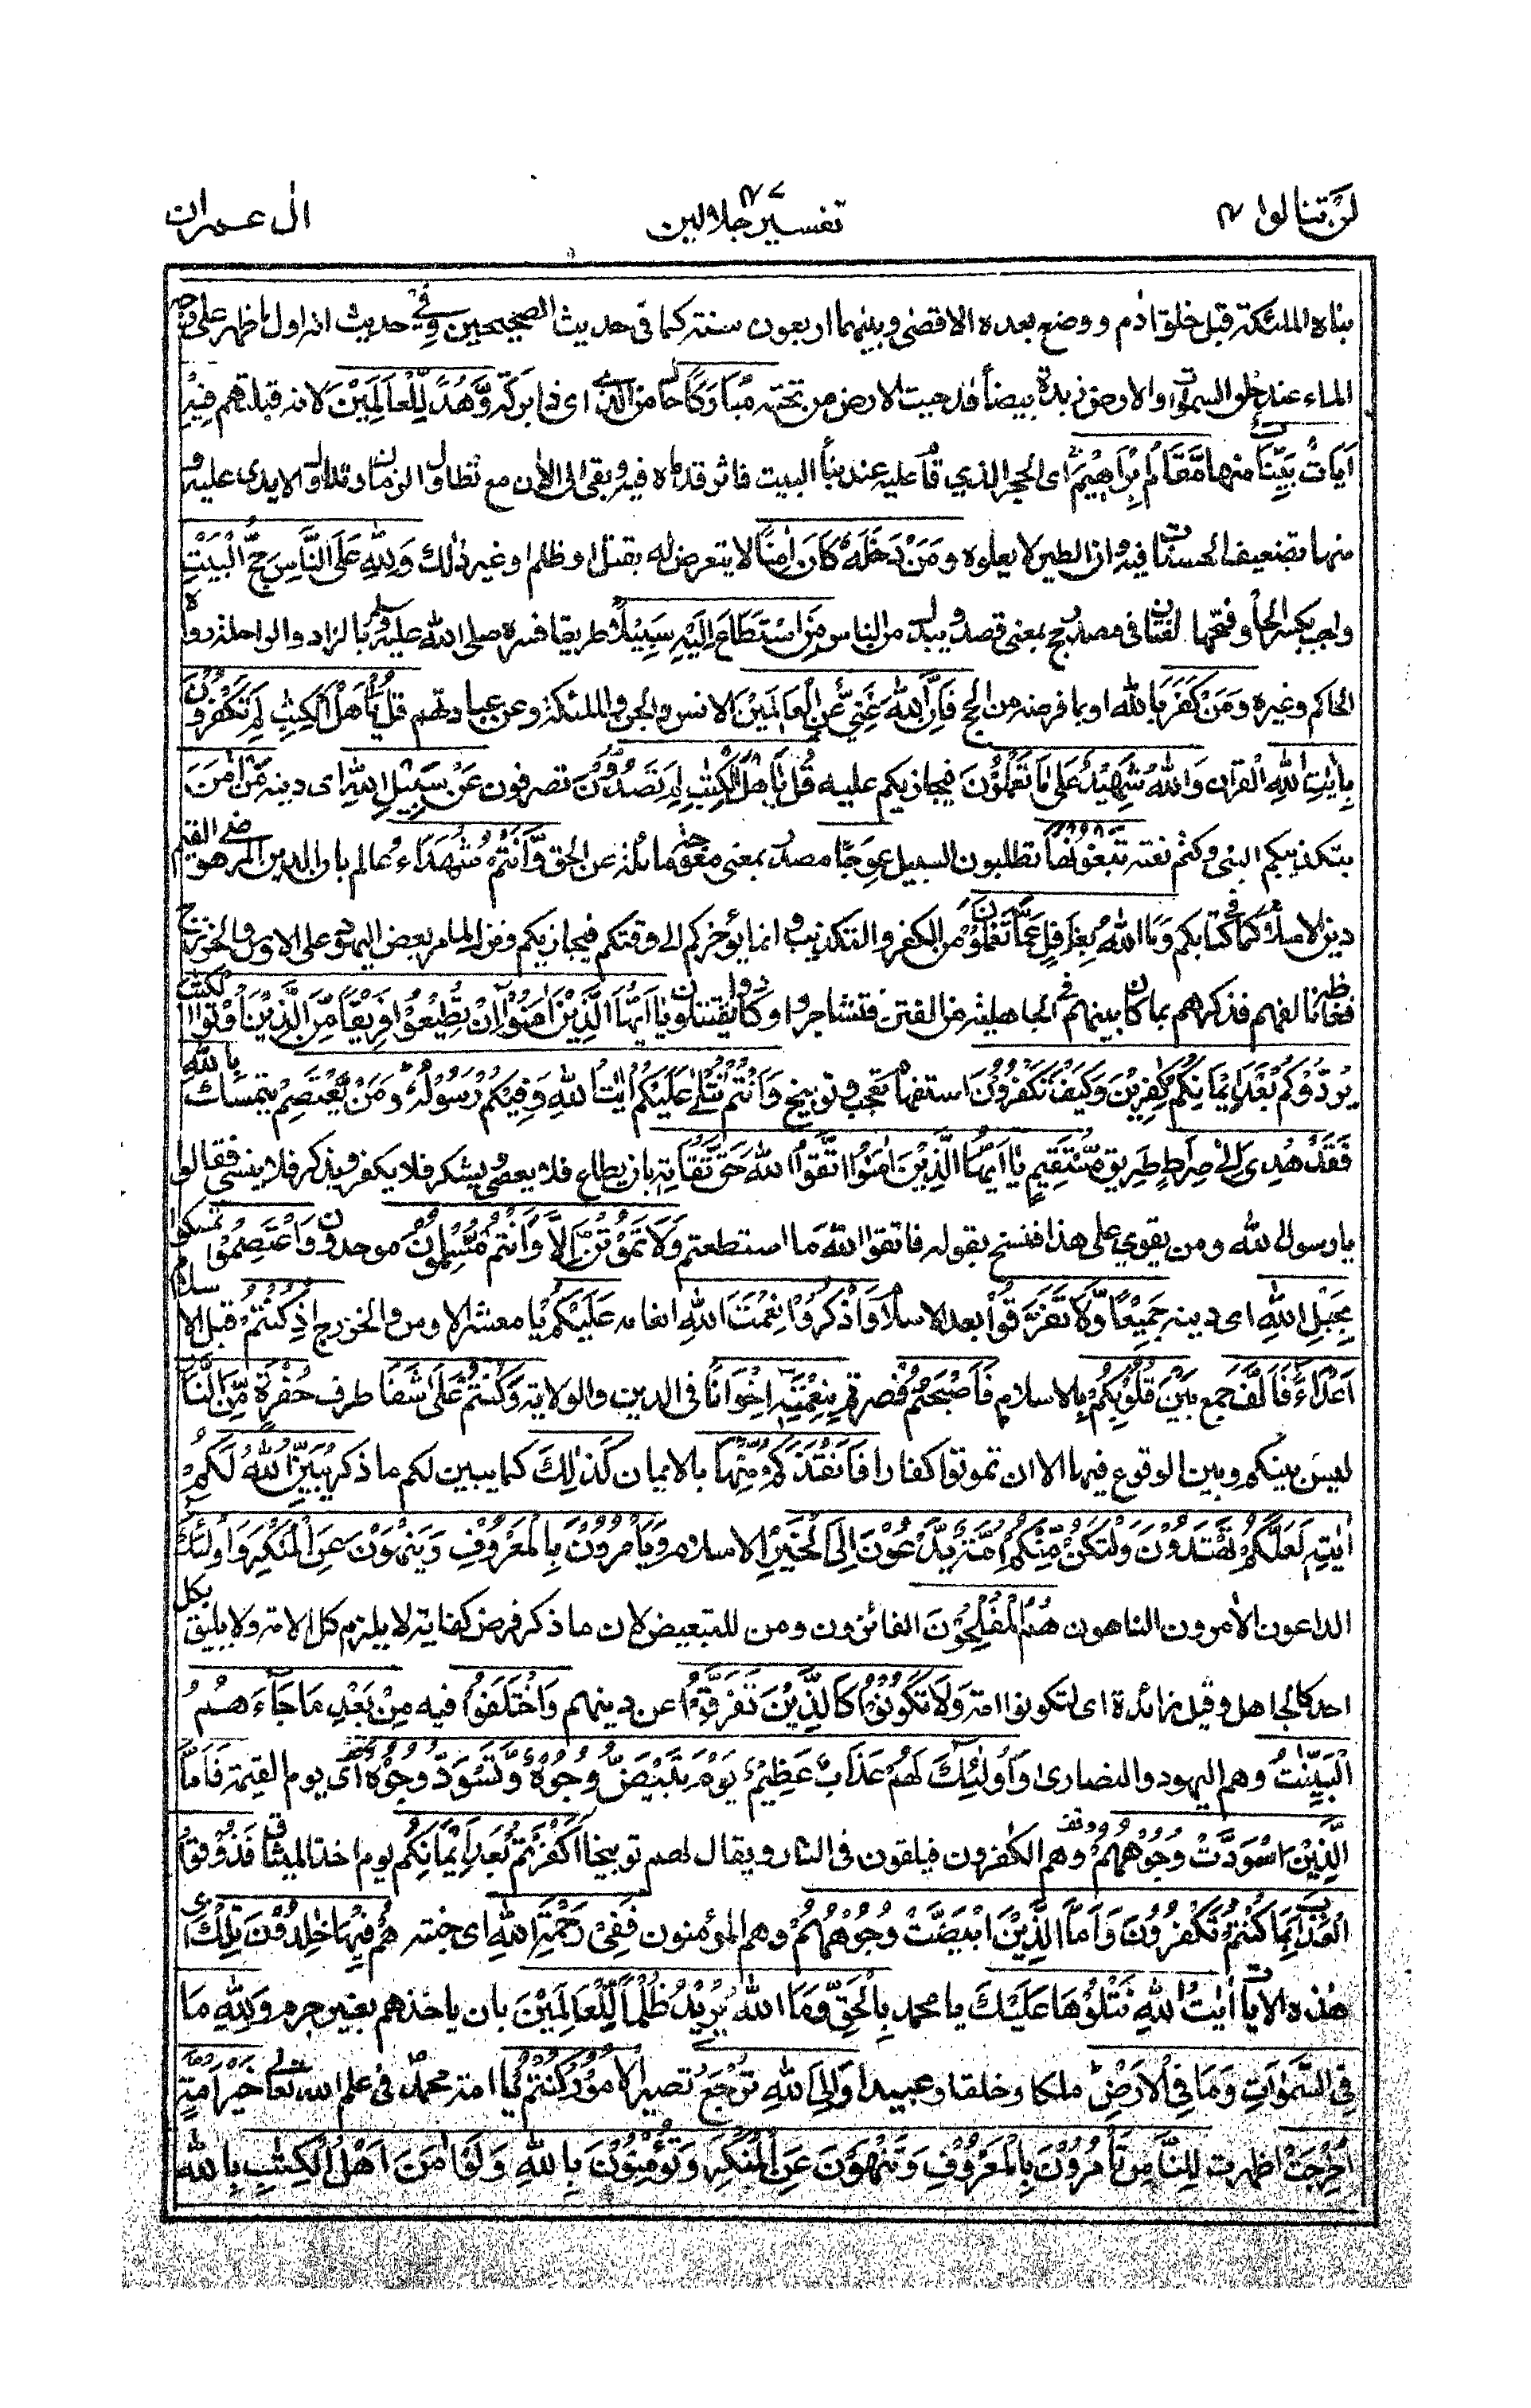 لن تنالوا ٤
تفسير جلالين
٤٧
ال عمران
بناه الملئكة قبل خلق ادم ووضع بعده الاقصى وبينهما اربعون سنة كما في حديث الصحيحين وفي حديث انه اول ما ظهر على وجه
الماء عند خلق السموات والارض زبدة بيضاً فدحيت الارض من تحته مُبَارَكًا حال من الذي اى ذا بركة وَّهُدًى لِّلْعَالَمِيْنَ لانه قبلتهم فِيْهِ
اٰيَاتٌ بَيِّنَاتٌ منها مَّقَامُ اِبْرَاهِيْمَ اى الحجر الذي قام عليه عند بنأ البيت فاثر قدماه فيه وبقى الى الاٰن مع تطاول الزمان وتداول الايدى عليه و
منها تضعيف الحسنات فيه وان الطير لا يعلوه وَمَنْ دَخَلَهٗ كَانَ اٰمِنًا لا يتعرض له بقتل او ظلم او غير ذٰلك وَلِلّٰهِ عَلَى النَّاسِ حِجُّ الْبَيْتِ
واجب بكسر الحأ وفتحها لغتان فى مصدر حج بمعنى قصد ويبدل من الناس مَنِ اسْتَطَاعَ اِلَيْهِ سَبِيْلًا طريقا فسره صلى الله عليه وسلم بالزاد والراحلة رواه
الحاكم وغيره وَمَنْ كَفَرَ بالله او بما فرضه من الحج فَاِنَّ اللّٰهَ غَنِيٌّ عَنِ الْعَالَمِيْنَ الانس والجن والملئكة وعن عبادتهم قُلْ يٰۤاَهْلَ الْكِتٰبِ لِمَ تَكْفُرُوْنَ
بِاٰيٰتِ اللّٰهِ القراٰن وَاللّٰهُ شَهِيْدٌ عَلٰى مَا تَعْمَلُوْنَ فيجازيكم عليه قُلْ يٰۤاَهْلَ الْكِتٰبِ لِمَ تَصُدُّوْنَ تصرفون عَنْ سَبِيْلِ اللّٰهِ اى دينه مَنْ اٰمَنَ
بتكذيبكم النبى وكتم نعته تَبْغُوْنَهَا تطلبون السبيل عِوَجًا مصدر بمعنى معوجة مائلة عن الحق وَّاَنْتُمْ شُهَدَآءُ عالم بان الدين المرضى القيم هو
دين الاسلام كما فى كتابكم وَمَا اللّٰهُ بِغَافِلٍ عَمَّا تَعْمَلُوْنَ من الكفر والتكذيب وانما يؤخركم الى وقتكم فيجازيكم ونزل لما مر بعض اليهود على الاوس والخزرج
فغاظه تألفهم فذكرهم بما كان بينهم فى الجاهلية من الفتن فتشاجروا وكادوا يقتتلون يٰۤاَيُّهَا الَّذِيْنَ اٰمَنُوْۤا اِنْ تُطِيْعُوْا فَرِيْقًا مِّنَ الَّذِيْنَ اُوْتُوا الْكِتٰبَ
يَرُدُّوْكُمْ بَعْدَ اِيْمَانِكُمْ كٰفِرِيْنَ وَكَيْفَ تَكْفُرُوْنَ استفهام تعجب وتوبيخ وَاَنْتُمْ تُتْلٰى عَلَيْكُمْ اٰيٰتُ اللّٰهِ وَفِيْكُمْ رَسُوْلُهٗ وَمَنْ يَّعْتَصِمْ يتمسك بِاللّٰهِ
فَقَدْ هُدِىَ اِلٰى صِرَاطٍ طريق مُّسْتَقِيْمٍ يٰۤاَيُّهَا الَّذِيْنَ اٰمَنُوا اتَّقُوا اللّٰهَ حَقَّ تُقَاتِهٖ بان يطاع فلا يعصى ويشكر فلا يكفر ويذكر فلا ينسى فقالوا
يا رسول الله ومن يقوي على هذا فنسخ بقوله فاتقوا الله ما استطعتم وَلَا تَمُوْتُنَّ اِلَّا وَاَنْتُمْ مُّسْلِمُوْنَ موحدون وَاعْتَصِمُوْا تمسكوا
بِحَبْلِ اللّٰهِ اى دينه جَمِيْعًا وَّلَا تَفَرَّقُوْا بعد الاسلام وَاذْكُرُوْا نِعْمَتَ اللّٰهِ انعامه عَلَيْكُمْ يا معشر الاوس والخزرج اِذْ كُنْتُمْ قبل الاسلام
اَعْدَآءً فَاَلَّفَ جمع بَيْنَ قُلُوْبِكُمْ بالاسلام فَاَصْبَحْتُمْ فصرتم بِنِعْمَتِهٖۤ اِخْوَانًا فى الدين والولاية وَكُنْتُمْ عَلٰى شَفَا طرف حُفْرَةٍ مِّنَ النَّارِ
ليس بينكم وبين الوقوع فيها الا ان تموتوا كفارا فَاَنْقَذَكُمْ مِّنْهَا بالايمان كَذٰلِكَ كما بين لكم ما ذكر يُبَيِّنُ اللّٰهُ لَكُمْ
اٰيٰتِهٖ لَعَلَّكُمْ تَهْتَدُوْنَ وَلْتَكُنْ مِّنْكُمْ اُمَّةٌ يَّدْعُوْنَ اِلَى الْخَيْرِ الاسلام وَيَأْمُرُوْنَ بِالْمَعْرُوْفِ وَيَنْهَوْنَ عَنِ الْمُنْكَرِ وَاُولٰٓئِكَ
الداعون الاٰمرون الناهون هُمُ الْمُفْلِحُوْنَ الفائزون ومن للتبعيض لان ما ذكر فرض كفاية لا يلزم كل الامة ولا يليق بكل
احد كالجاهل وقيل زائدة اى لتكونوا امة وَلَا تَكُوْنُوْا كَالَّذِيْنَ تَفَرَّقُوْا عن دينهم وَاخْتَلَفُوْا فيه مِنْ بَعْدِ مَا جَآءَهُمُ
الْبَيِّنٰتُ وهم اليهود والنصارى وَاُولٰٓئِكَ لَهُمْ عَذَابٌ عَظِيْمٌ يَّوْمَ تَبْيَضُّ وُجُوْهٌ وَّتَسْوَدُّ وُجُوْهٌ اى يوم القيمة فَاَمَّا
الَّذِيْنَ اسْوَدَّتْ وُجُوْهُهُمْ وهم الكفرون فيلقون فى النار ويقال لهم توبيخا اَكَفَرْتُمْ بَعْدَ اِيْمَانِكُمْ يوم اخذ الميثاق فَذُوْقُوا
الْعَذَابَ بِمَا كُنْتُمْ تَكْفُرُوْنَ وَاَمَّا الَّذِيْنَ ابْيَضَّتْ وُجُوْهُهُمْ وهم المؤمنون فَفِىْ رَحْمَةِ اللّٰهِ اى جنته هُمْ فِيْهَا خٰلِدُوْنَ تِلْكَ اى
هٰذه الاٰيات اٰيٰتُ اللّٰهِ نَتْلُوْهَا عَلَيْكَ يا محمد بِالْحَقِّ وَمَا اللّٰهُ يُرِيْدُ ظُلْمًا لِّلْعَالَمِيْنَ بان ياخذهم بغير جرم وَلِلّٰهِ مَا
فِى السَّمٰوَاتِ وَمَا فِى الْاَرْضِ ملكا وخلقا وعبيدا وَاِلَى اللّٰهِ تُرْجَعُ تصير الْاُمُوْرُ كُنْتُمْ يا امة محمدٍ فى علم الله تعالى خَيْرَ اُمَّةٍ
اُخْرِجَتْ اظهرت لِلنَّاسِ تَأْمُرُوْنَ بِالْمَعْرُوْفِ وَتَنْهَوْنَ عَنِ الْمُنْكَرِ وَتُؤْمِنُوْنَ بِاللّٰهِ وَلَوْ اٰمَنَ اَهْلُ الْكِتٰبِ بِاللّٰهِ